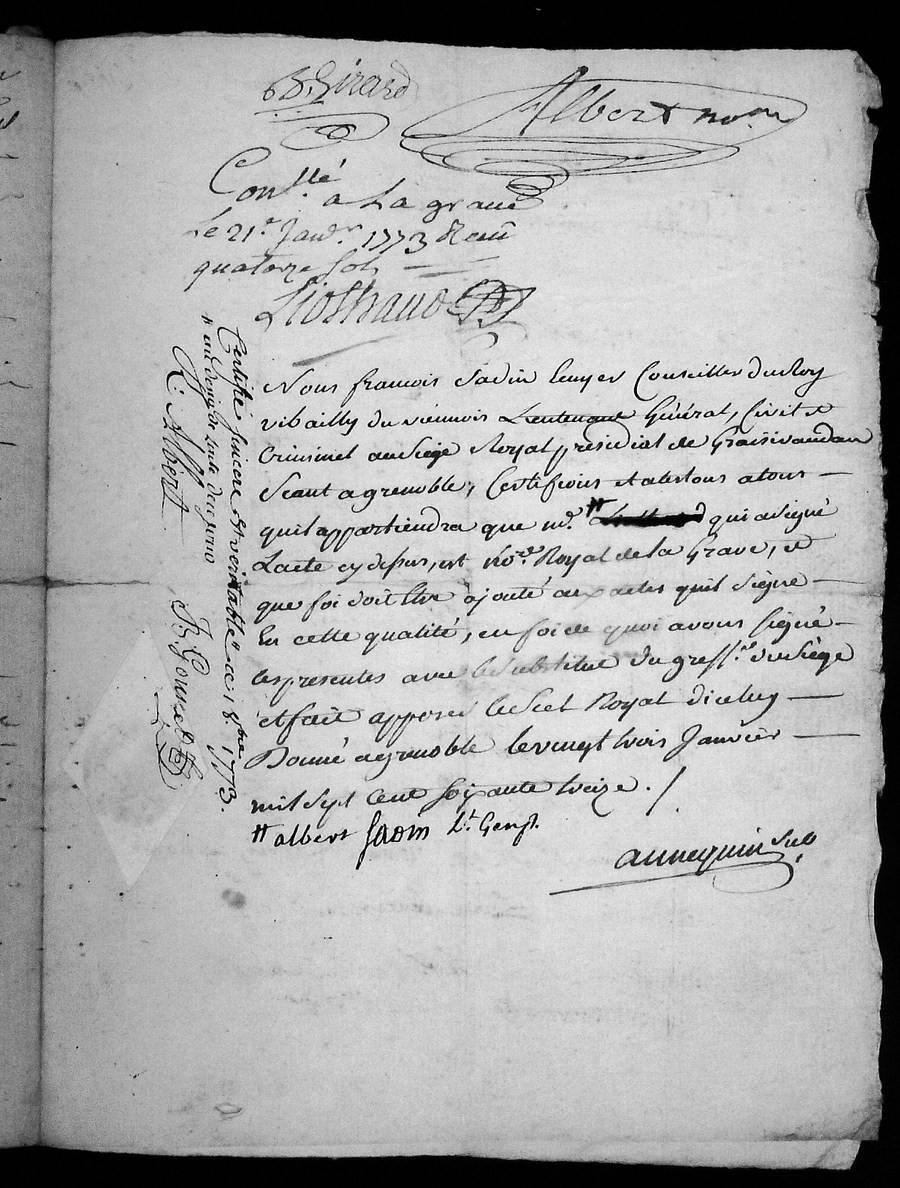 B. Girard
Albert no.re
Con.llé a La grave
Le 21.e Janv.r 1773 Reçu
quatorze sols
Liothaud
Nous francois Sadin Ecuyer Conseiller du Roy
vibailly du viennois Lieutenant Général, Civil et
Criminel au Siége Royal présidial de Graisivaudan
Séant a grenoble, Certifions et attestons a tous
quil appartiendra que m.e # qui a signé
Lacte cy dessus, est no.re Royal de la Grave, et
que foi doit être ajouté aux actes quil signe
En cette qualité, en foi de quoi avons signé
les presentes avec le substitut du greff.er du Siége
et fait apposer le Scel Royal dicelluy
Donné a grenoble le vingt trois Janvier
mil sept Cent soixante treize ./
# albert L.t Gen.l
annequin sub
Certifié sincere et veritable ce 18.bre 1773.
R. Albert